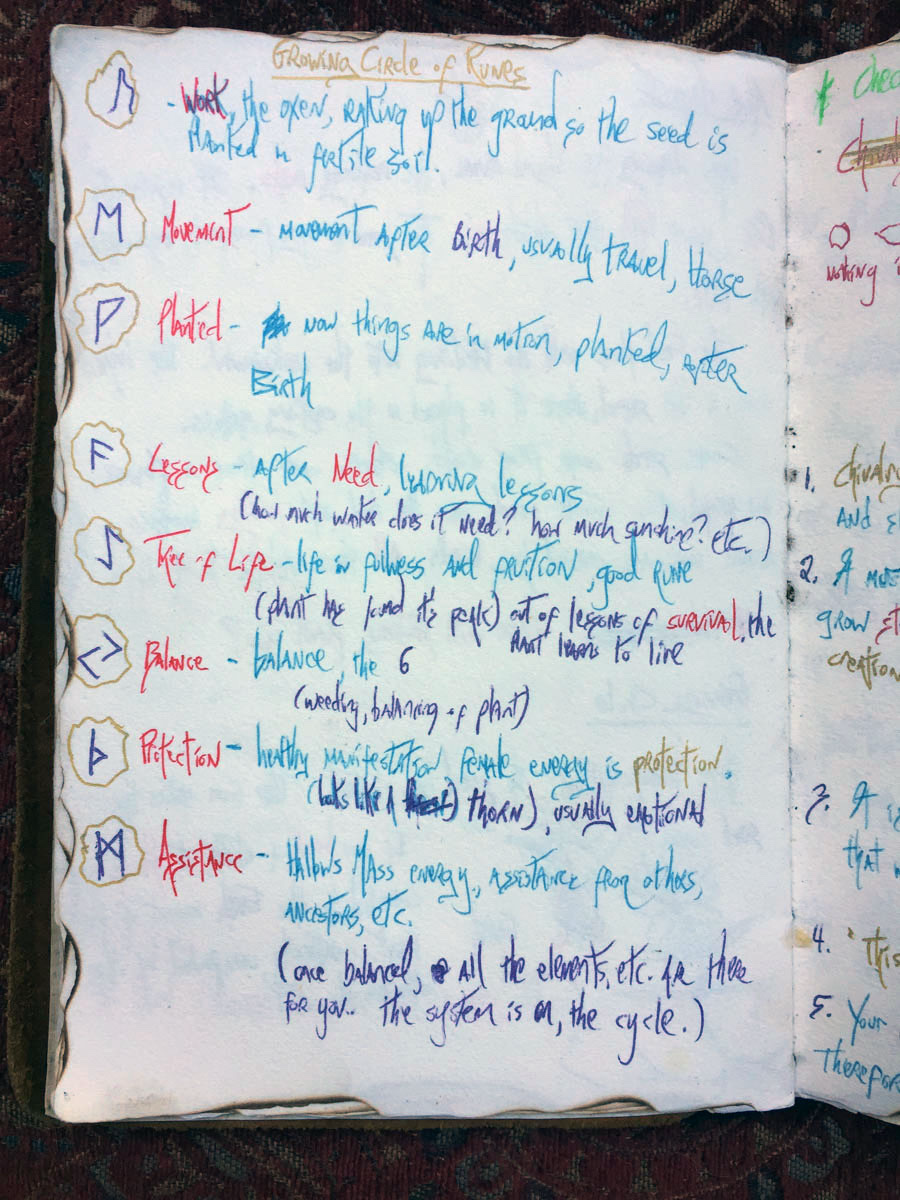 Growing Circle of Runes
ᚢ - Work, the oxen, raking up the ground so the seed is
planted in fertile soil.
ᛖ Movement - movement after Birth, usually travel, Horse
ᚹ Planted - now things are in motion, planted, after
Birth
ᚨ Lessons - after Need, learning lessons
(how much water does it need? how much sunshine? etc.)
ᛇ Tree of Life - life in fullness and fruition, good rune
(plant has found it's peak) out of lessons of survival, the
plant learns to live
ᛃ Balance - balance, the 6
(weeding, balancing of plant)
ᚦ Protection - healthy manifestation female energy is protection.
(looks like a thorn), usually emotional
ᛗ Assistance - Hallows Mass energy, assistance from others,
ancestors, etc.
(once balanced, all the elements, etc. are there
for you.. the system is on, the cycle.)
nothing
1. Chivalry
and
2. A
grow
creation
3. A
that
4. "This
5. Your
Therefor